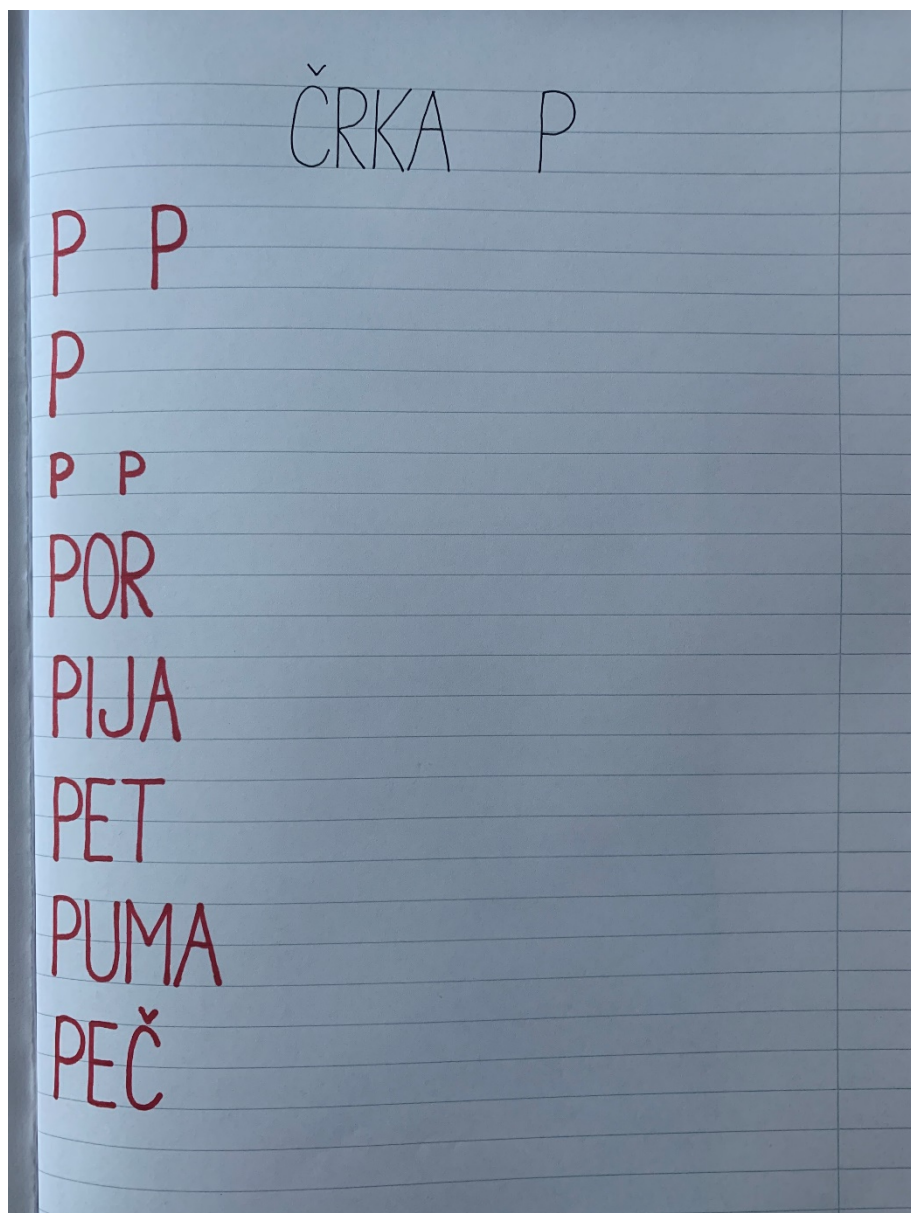 ČRKA P
P P
P
P P
POR
PIJA
PET
PUMA
PEČ